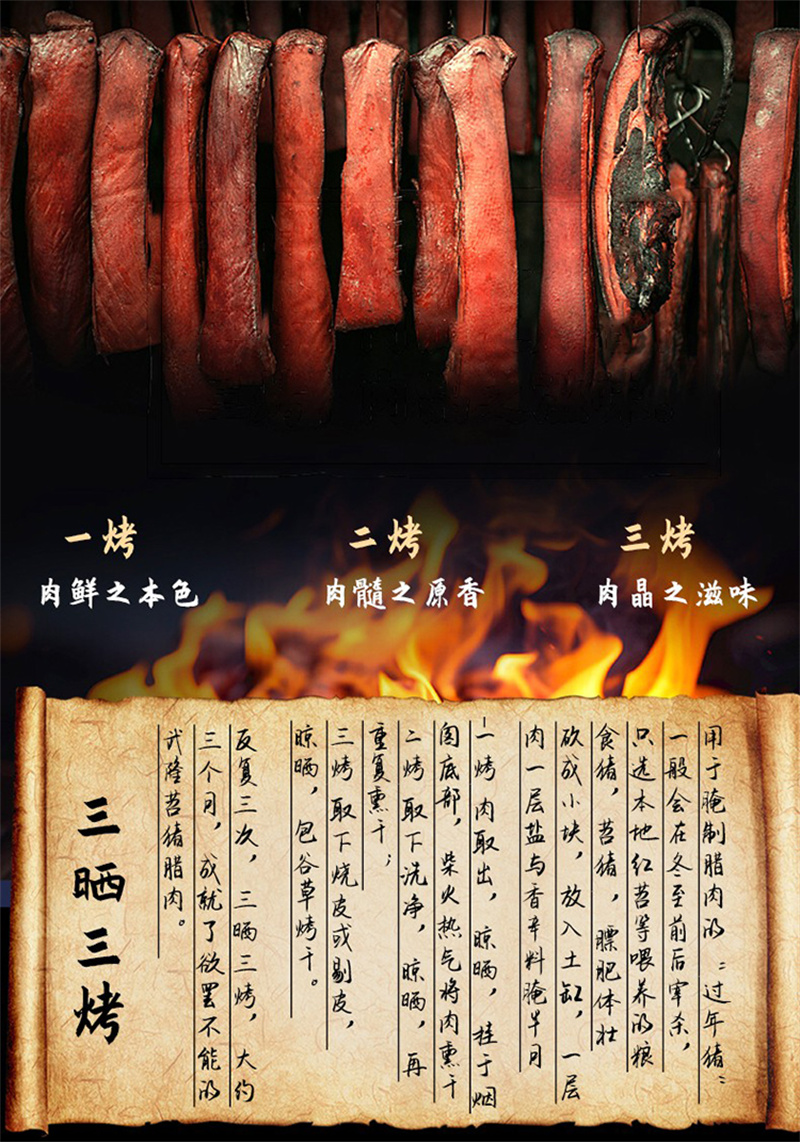 一烤
肉鲜之本色
二烤
肉髓之原香
三烤
肉晶之滋味
用于腌制腊肉的“过年猪”
一般会在冬至前后宰杀，
只选本地红苕等喂养的粮
食猪，苕猪，膘肥体壮
砍成小块，放入土缸，一层
肉一层盐与香辛料腌半月
一烤肉取出，晾晒，挂于烟
囱底部，柴火热气将肉熏干
二烤取下洗净，晾晒，再
重复熏干；
三烤取下烧皮或剔皮，
晾晒，包谷草烤干。
反复三次，三晒三烤，大约
三个月，成就了欲罢不能的
武隆苕猪腊肉。
三晒三烤